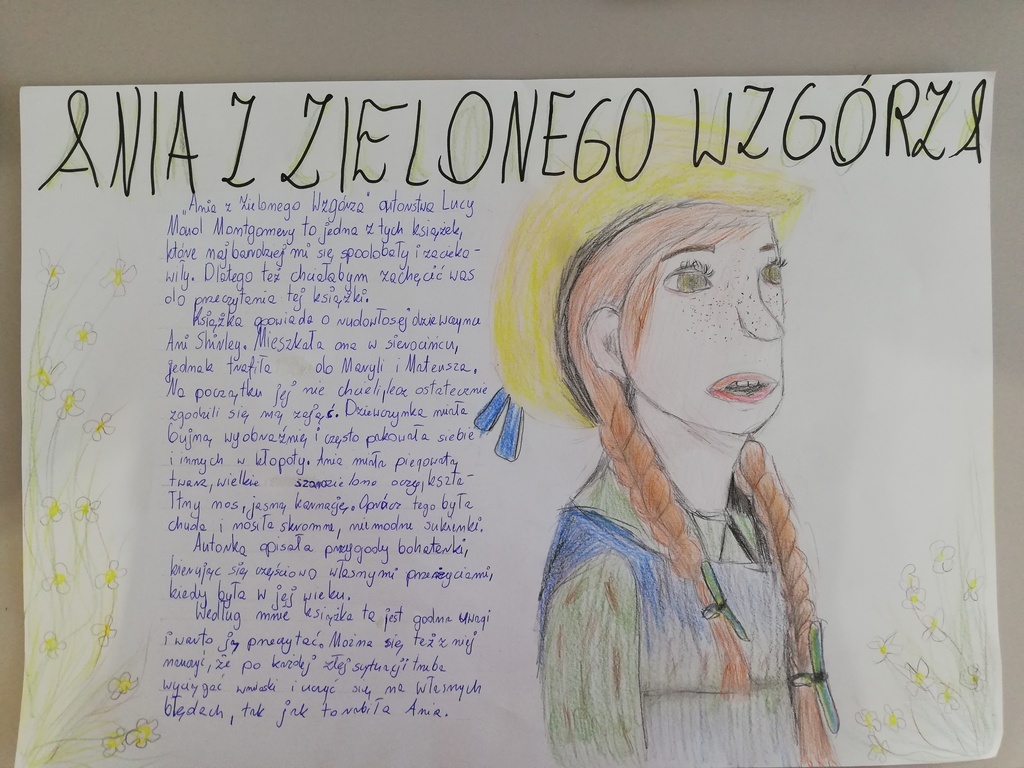 ANIA Z ZIELONEGO WZGÓRZA
„Ania z Zielonego Wzgórza" autorstwa Lucy
Maud Montgomery to jedna z tych książek,
które najbardziej mi się spodobały i zacieka-
wiły. Dlatego też chciałabym zachęcić was
do przeczytania tej książki.
Książka opowiada o rudowłosej dziewczynie
Ani Shirley. Mieszkała ona w sierocińcu,
jednak trafiła do Maryli i Mateusza.
Na początku jej nie chcieli, lecz ostatecznie
zgodzili się nią zająć. Dziewczynka miała
bujną wyobraźnię i często pakowała siebie
i innych w kłopoty. Ania miała piegowatą
twarz, wielkie szarozielone oczy, kształ-
tny nos, jasną karnację. Oprócz tego była
chuda i nosiła skromne, niemodne sukienki.
Autorka opisała przygody bohaterki,
kierując się częściowo własnymi przeżyciami,
kiedy była w jej wieku.
Według mnie książka ta jest godna uwagi
i warto ją przeczytać. Można się też z niej
nauczyć, że po każdej złej sytuacji trzeba
wyciągać wnioski i uczyć się na własnych
błędach, tak jak to robiła Ania.